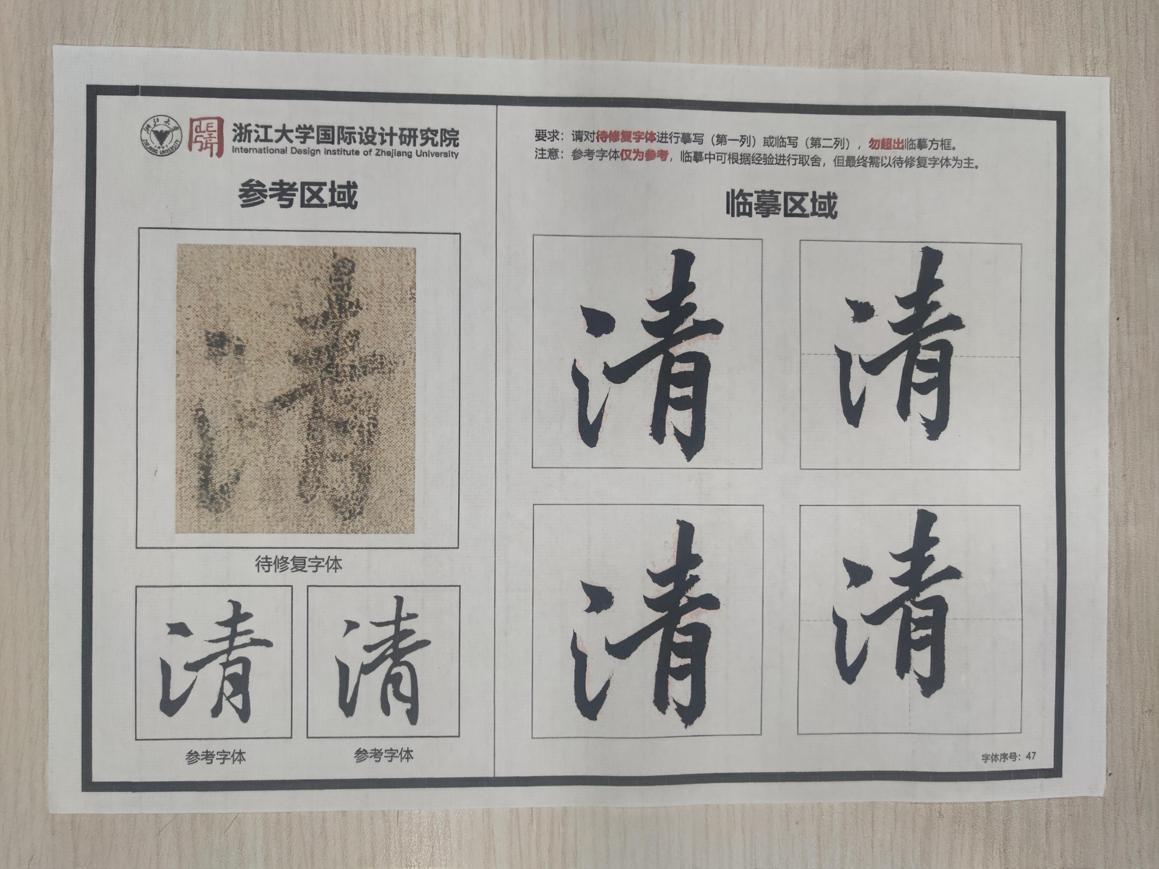 浙江大学国际设计研究院
International Design Institute of Zhejiang University
参考区域
清
待修复字体
清
清
参考字体
参考字体
要求：请对待修复字体进行摹写（第一列）或临写（第二列），勿超出临摹方框。
注意：参考字体仅为参考，临摹中可根据经验进行取舍，但最终需以待修复字体为主。
临摹区域
清
清
清
清
字体序号：47